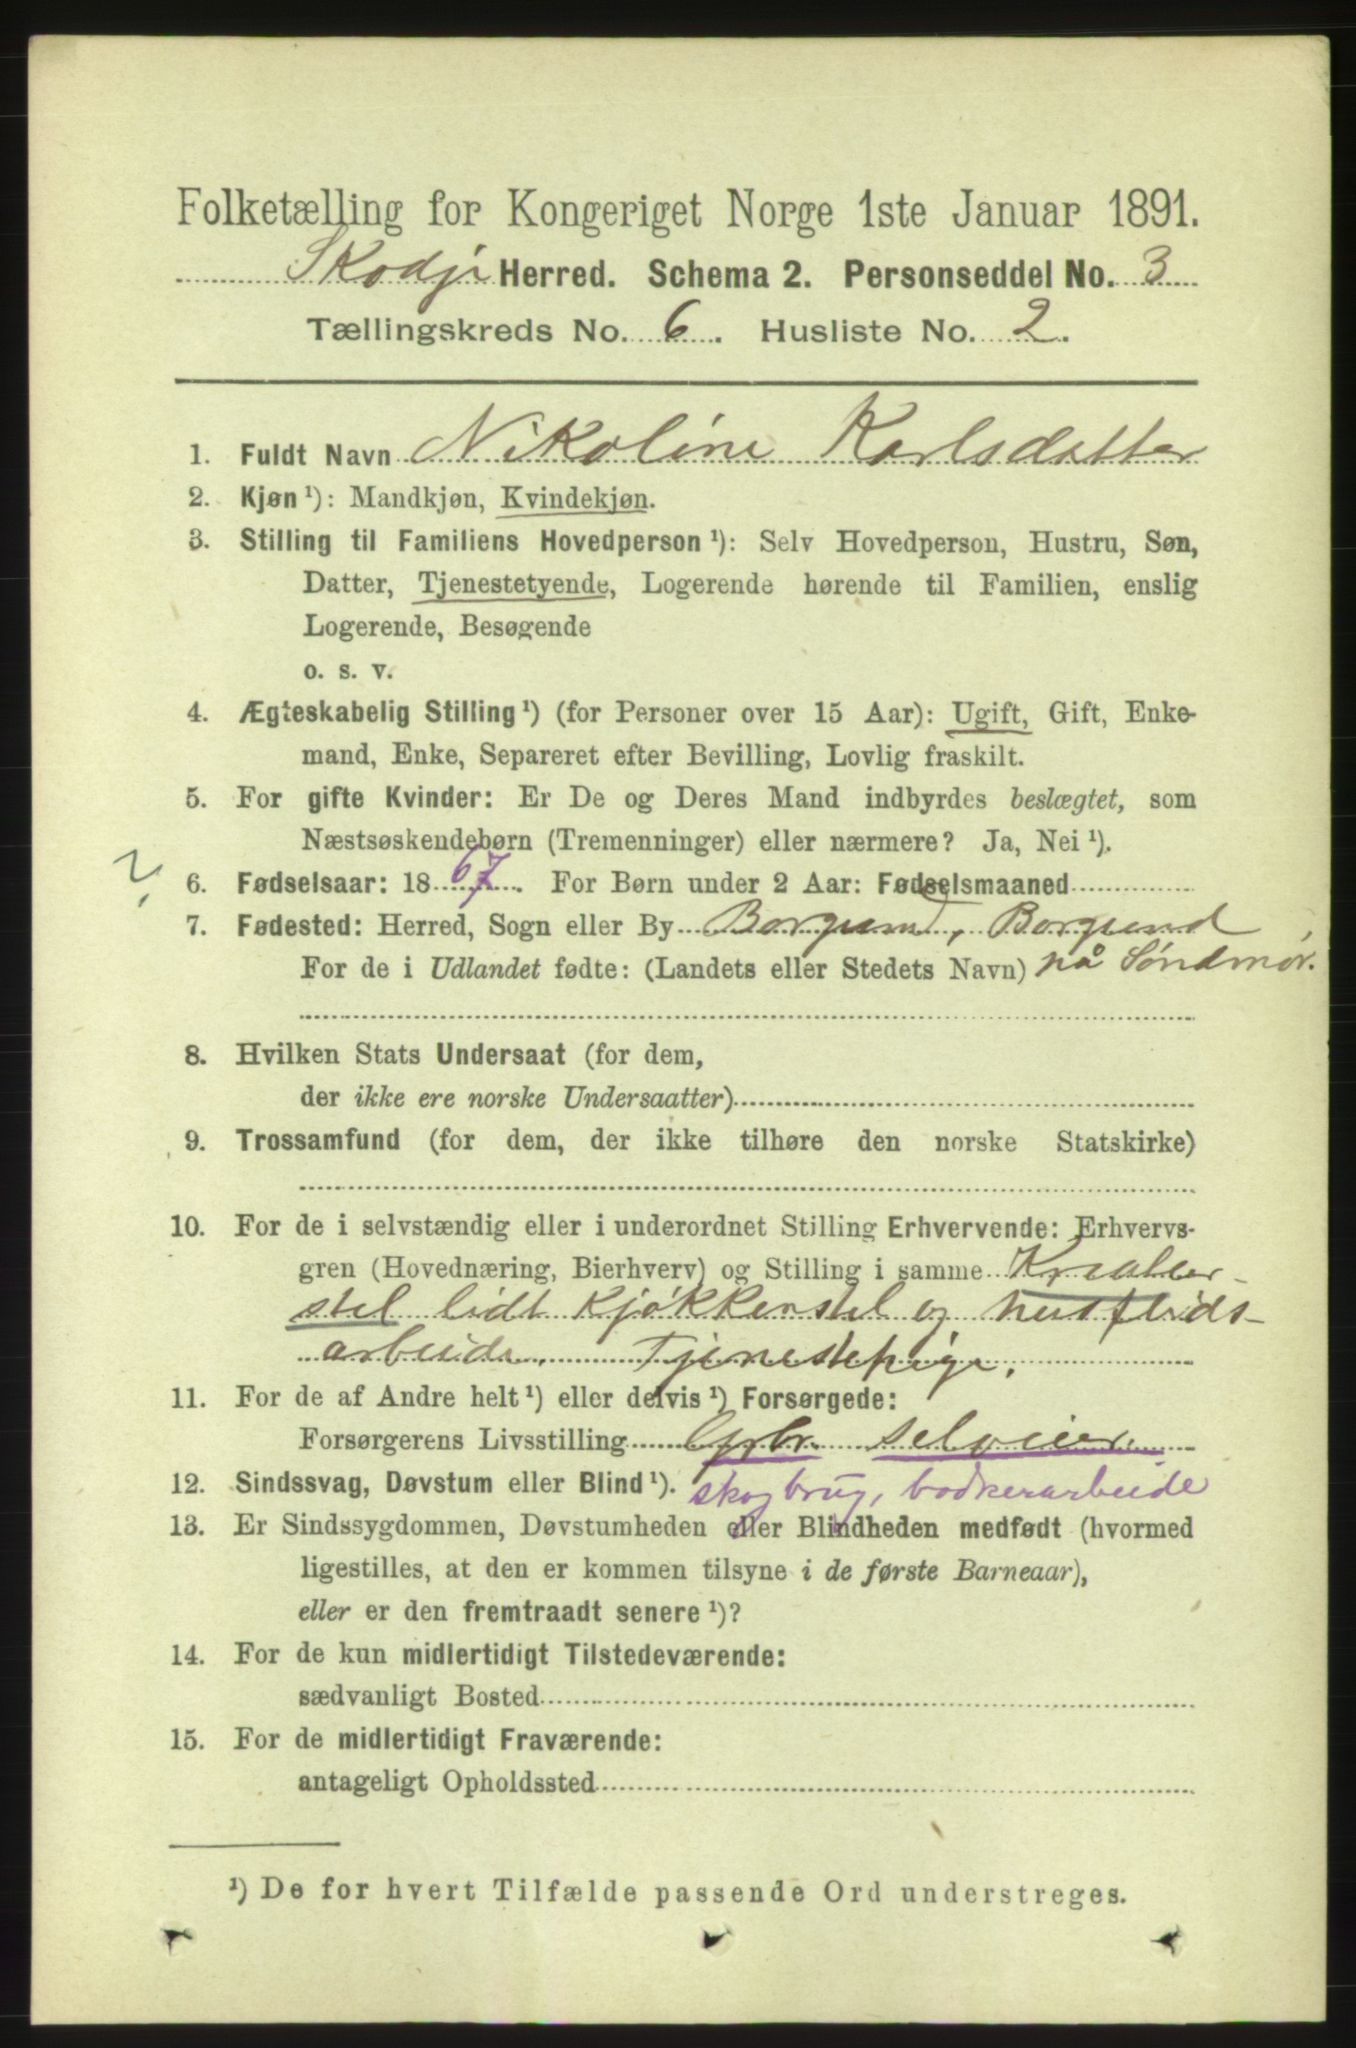 Folketælling for Kongeriget Norge 1ste Januar 1891.
Skodje Herred. Schema 2. Personseddel No. 3
Tællingskreds No. 6. Husliste No. 2.
1. Fuldt Navn Nikoline Karlsdatter
2. Kjøn ¹): Mandkjøn, Kvindekjøn.
3. Stilling til Familiens Hovedperson ¹): Selv Hovedperson, Hustru, Søn,
Datter, Tjenestetyende, Logerende hørende til Familien, enslig
Logerende, Besøgende
o. s. v.
4. Ægteskabelig Stilling ¹) (for Personer over 15 Aar): Ugift, Gift, Enke-
mand, Enke, Separeret efter Bevilling, Lovlig fraskilt.
5. For gifte Kvinder: Er De og Deres Mand indbyrdes beslægtet, som
Næstsøskendebørn (Tremenninger) eller nærmere? Ja, Nei ¹).
?
6. Fødselsaar: 1867. For Børn under 2 Aar: Fødselsmaaned
7. Fødested: Herred, Sogn eller By Borgund, Borgund
For de i Udlandet fødte: (Landets eller Stedets Navn) på Søndmør.
8. Hvilken Stats Undersaat (for dem,
der ikke ere norske Undersaatter)
9. Trossamfund (for dem, der ikke tilhøre den norske Statskirke)
10. For de i selvstændig eller i underordnet Stilling Erhvervende: Erhvervs-
gren (Hovednæring, Bierhverv) og Stilling i samme Kreatur-
stel lidt Kjøkkenstel og husflids-
arbeide. Tjenestepige.
11. For de af Andre helt ¹) eller delvis ¹) Forsørgede:
Forsørgerens Livsstilling Grbr. selveier.
12. Sindssvag, Døvstum eller Blind ¹). skogbrug, bødkerarbeide
13. Er Sindssygdommen, Døvstumheden eller Blindheden medfødt (hvormed
ligestilles, at den er kommen tilsyne i de første Barneaar),
eller er den fremtraadt senere ¹)?
14. For de kun midlertidigt Tilstedeværende:
sædvanligt Bosted
15. For de midlertidigt Fraværende:
antageligt Opholdssted
¹) De for hvert Tilfælde passende Ord understreges.